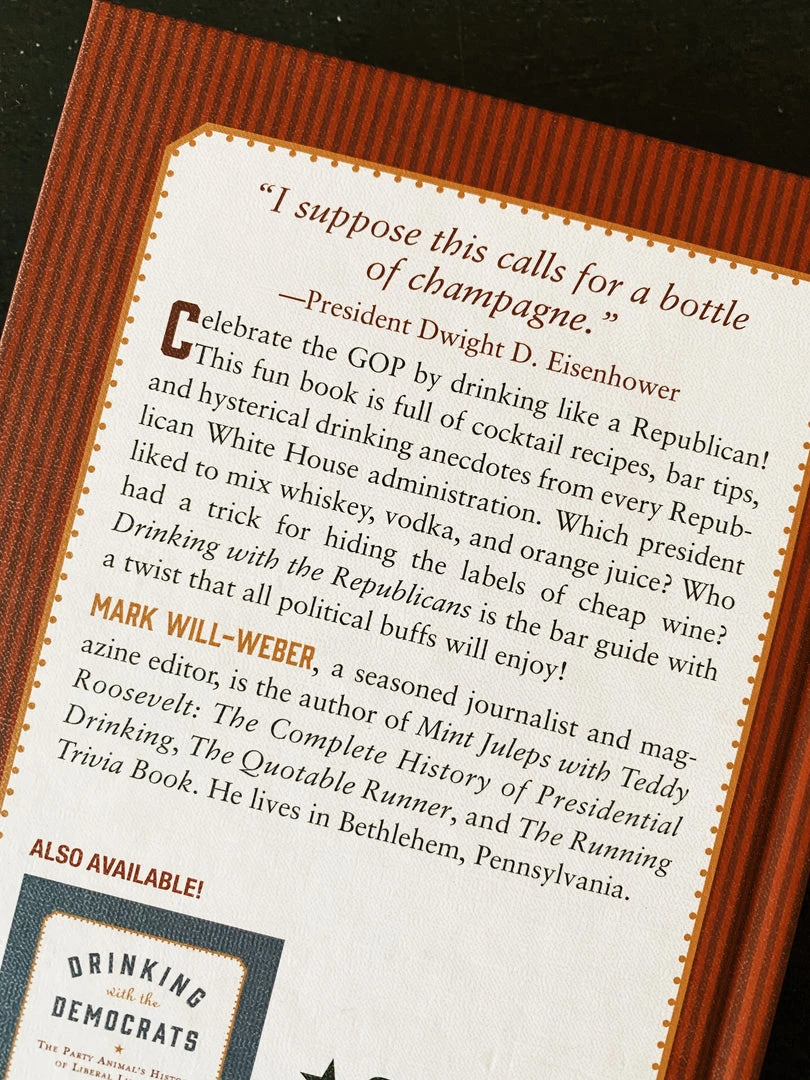 “I suppose this calls for a bottle
of champagne.”
—President Dwight D. Eisenhower
Celebrate the GOP by drinking like a Republican!
This fun book is full of cocktail recipes, bar tips,
and hysterical drinking anecdotes from every Repub-
lican White House administration. Which president
liked to mix whiskey, vodka, and orange juice? Who
had a trick for hiding the labels of cheap wine?
Drinking with the Republicans is the bar guide with
a twist that all political buffs will enjoy!
MARK WILL-WEBER, a seasoned journalist and mag-
azine editor, is the author of Mint Juleps with Teddy
Roosevelt: The Complete History of Presidential
Drinking, The Quotable Runner, and The Running
Trivia Book. He lives in Bethlehem, Pennsylvania.
ALSO AVAILABLE!
DRINKING
with the
DEMOCRATS
THE PARTY ANIMAL'S
OF LIBERAL